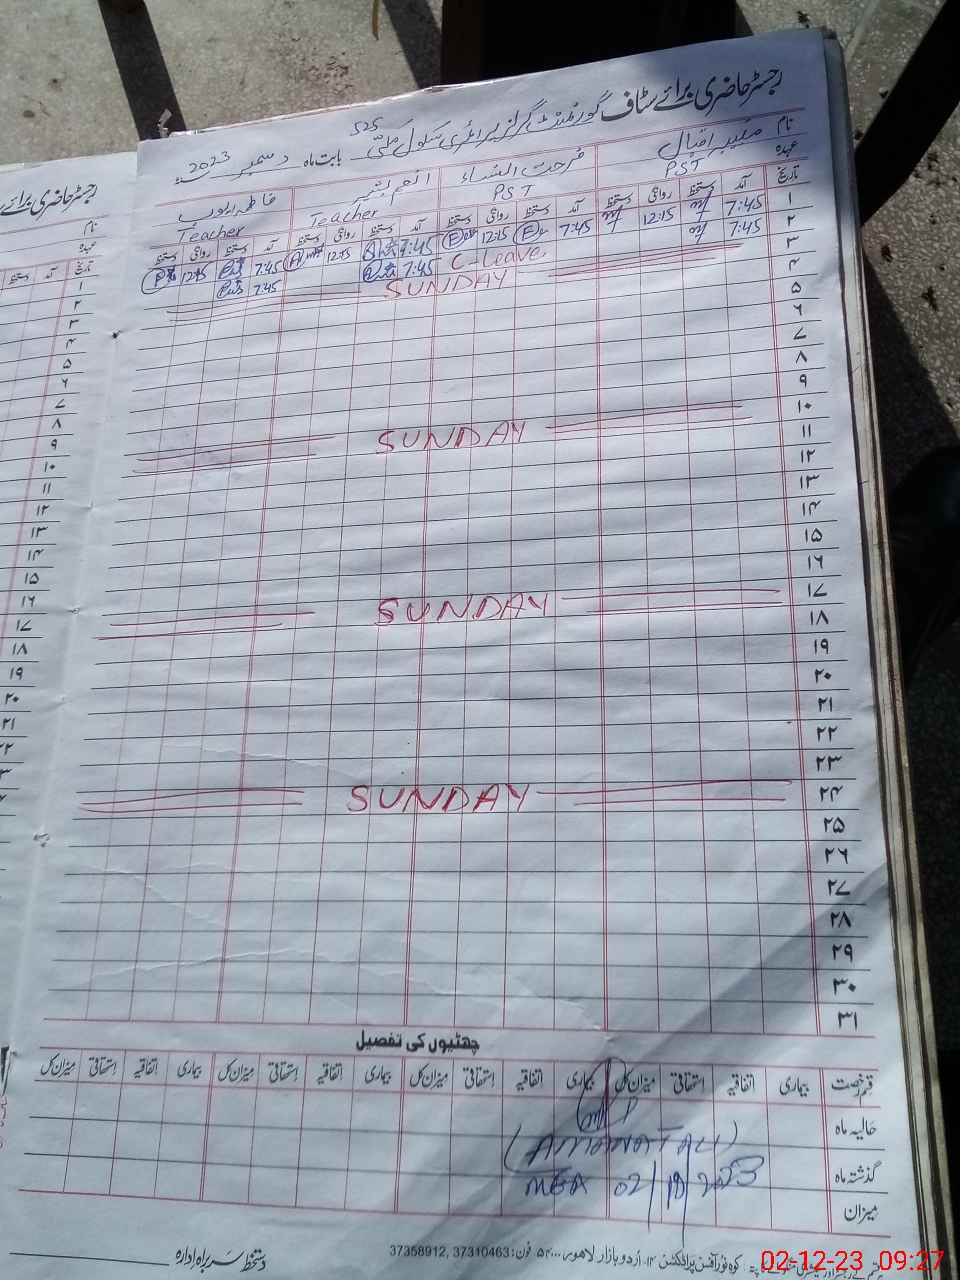 رجسٹر حاضری برائے سٹاف گورنمنٹ گرلز پرائمری سکول
525
بابت ماہ دسمبر 2023
نام
فرحت النساء
عہدہ PST PST Teacher Teacher
تاریخ آمد دستخط روانگی دستخط آمد دستخط روانگی دستخط آمد دستخط روانگی دستخط آمد دستخط روانگی دستخط
۱ 7:45 12:15 7:45 12:15 7:45 12:15 7:45 12:15
۲ 7:45 C-Leave 7:45 7:45
۳ SUNDAY
۴
۵
۶
۷
۸
۹
۱۰ SUNDAY
۱۱
۱۲
۱۳
۱۴
۱۵
۱۶
۱۷ SUNDAY
۱۸
۱۹
۲۰
۲۱
۲۲
۲۳
۲۴ SUNDAY
۲۵
۲۶
۲۷
۲۸
۲۹
۳۰
۳۱
چھٹیوں کی تفصیل
قسم رخصت بیماری اتفاقیہ استحقاقی میزان کل بیماری اتفاقیہ استحقاقی میزان کل بیماری اتفاقیہ استحقاقی میزان کل بیماری اتفاقیہ استحقاقی میزان کل
حالیہ ماہ
(AMANAT ALI)
گذشتہ ماہ
MEA 02/12/2023
میزان
دستخط سربراہ ادارہ
اردو بازار لاہور فون: 37310463, 37358912
02-12-23 09:27
رجسٹر حاضری برائے
نام
عہدہ
تاریخ آمد دستخط
۱
۲
۳
۴
۵
۶
۷
۸
۹
۱۰
۱۱
۱۲
۱۳
۱۴
۱۵
۱۶
۱۷
۱۸
۱۹
۲۰
۲۱